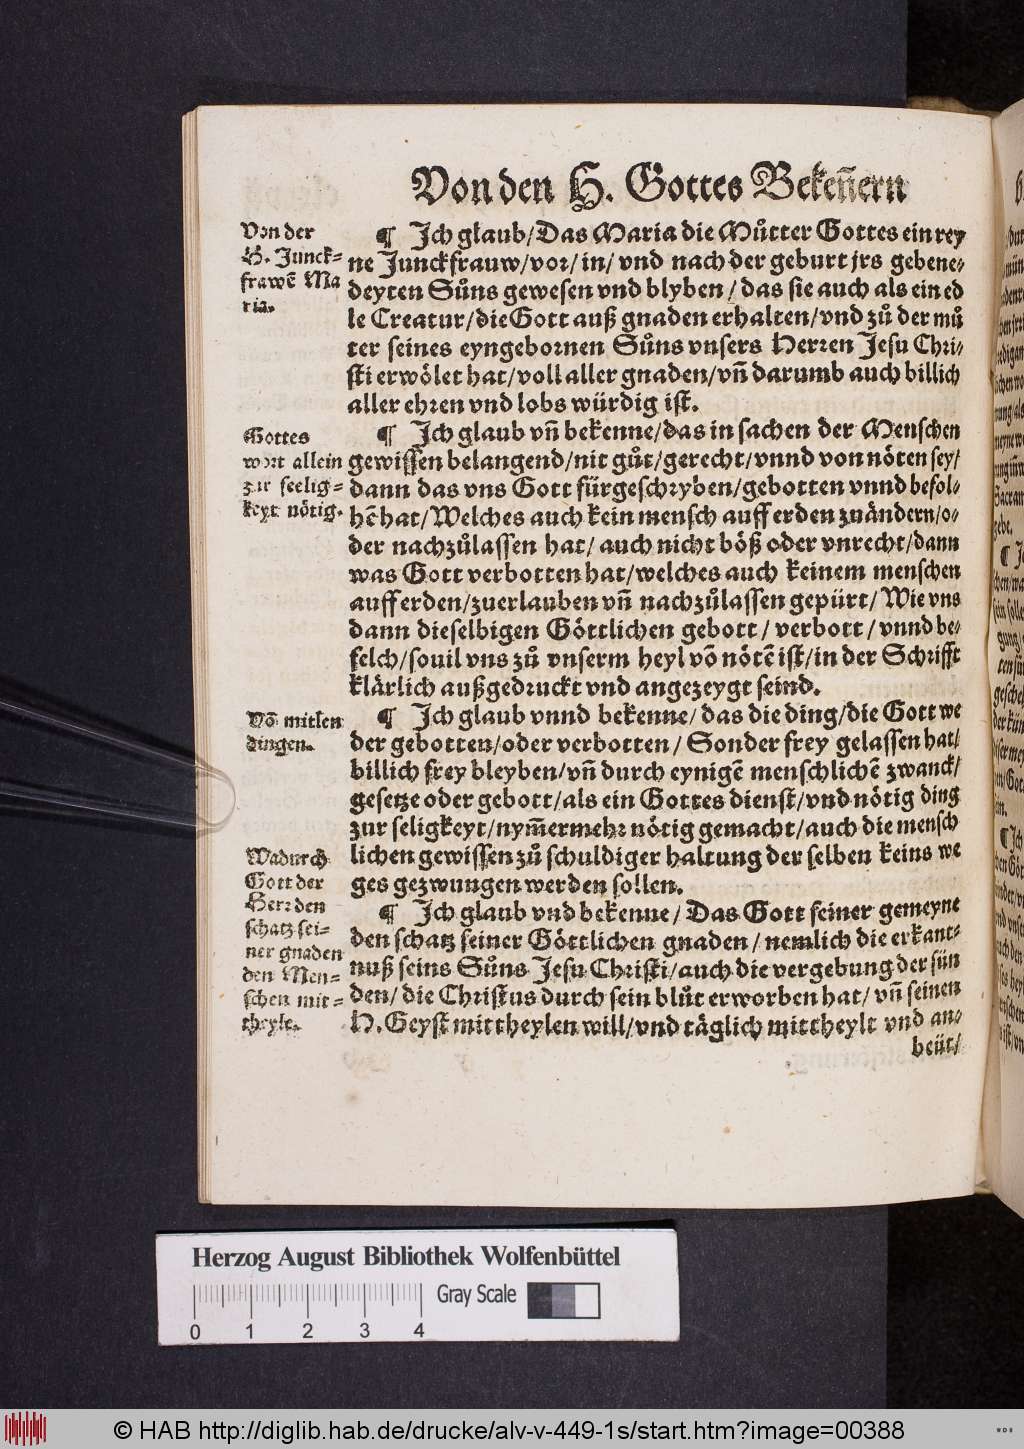 Von den H. Gottes Bekeñern
Von der
H. Junck-
frawẽ Ma
ria.
¶ Ich glaub/Das Maria die Můtter Gottes ein rey
ne Junckfrauw/vor/in/vnd nach der geburt jrs gebene-
deyten Sůns gewesen vnd blyben/das sie auch als ein ed
le Creatur/die Gott auß gnaden erhalten/vnd zů der mů
ter seines eyngebornen Sůns vnsers Herren Jesu Chri-
sti erwölet hat/voll aller gnaden/vñ darumb auch billich
aller ehren vnd lobs würdig ist.
Gottes
wort allein
zur seelig-
keyt nötig.
¶ Ich glaub vñ bekenne/das in sachen der Menschen
gewissen belangend/nit gůt/gerecht/vnnd von nöten sey/
dann das vns Gott fürgeschryben/gebotten vnnd befol-
hẽ hat/Welches auch kein mensch auff erden zuändern/o-
der nachzůlassen hat/auch nicht böß oder vnrecht/dann
was Gott verbotten hat/welches auch keinem menschen
auff erden/zuerlauben vñ nachzůlassen gepürt/Wie vns
dann dieselbigen Göttlichen gebott/verbott/vnnd be-
felch/souil vns zů vnserm heyl võ nötẽ ist/in der Schrifft
klärlich außgedruckt vnd angezeygt seind.
Võ mitlen
dingen.
¶ Ich glaub vnnd bekenne/das die ding/die Gott we
der gebotten/oder verbotten/Sonder frey gelassen hat/
billich frey bleyben/vñ durch eynigẽ menschlichẽ zwanck/
gesetze oder gebott/als ein Gottes dienst/vnd nötig ding
zur seligkeyt/nym̃ermehr nötig gemacht/auch die mensch
lichen gewissen zů schuldiger haltung der selben keins we
ges gezwungen werden sollen.
Wadurch
Gott der
Herr den
schatz sei-
ner gnaden
den Men-
schen mit-
theylt.
¶ Ich glaub vnd bekenne/Das Gott seiner gemeyne
den schatz seiner Göttlichen gnaden/nemlich die erkant-
nuß seins Sůns Jesu Christi/auch die vergebung der sün
den/die Christus durch sein blůt erworben hat/vñ seinen
H. Geyst mittheylen will/vnd täglich mittheylt vnd an-
beüt/
Herzog August Bibliothek Wolfenbüttel
0 1 2 3 4
Gray Scale
© HAB http://diglib.hab.de/drucke/alv-v-449-1s/start.htm?image=00388